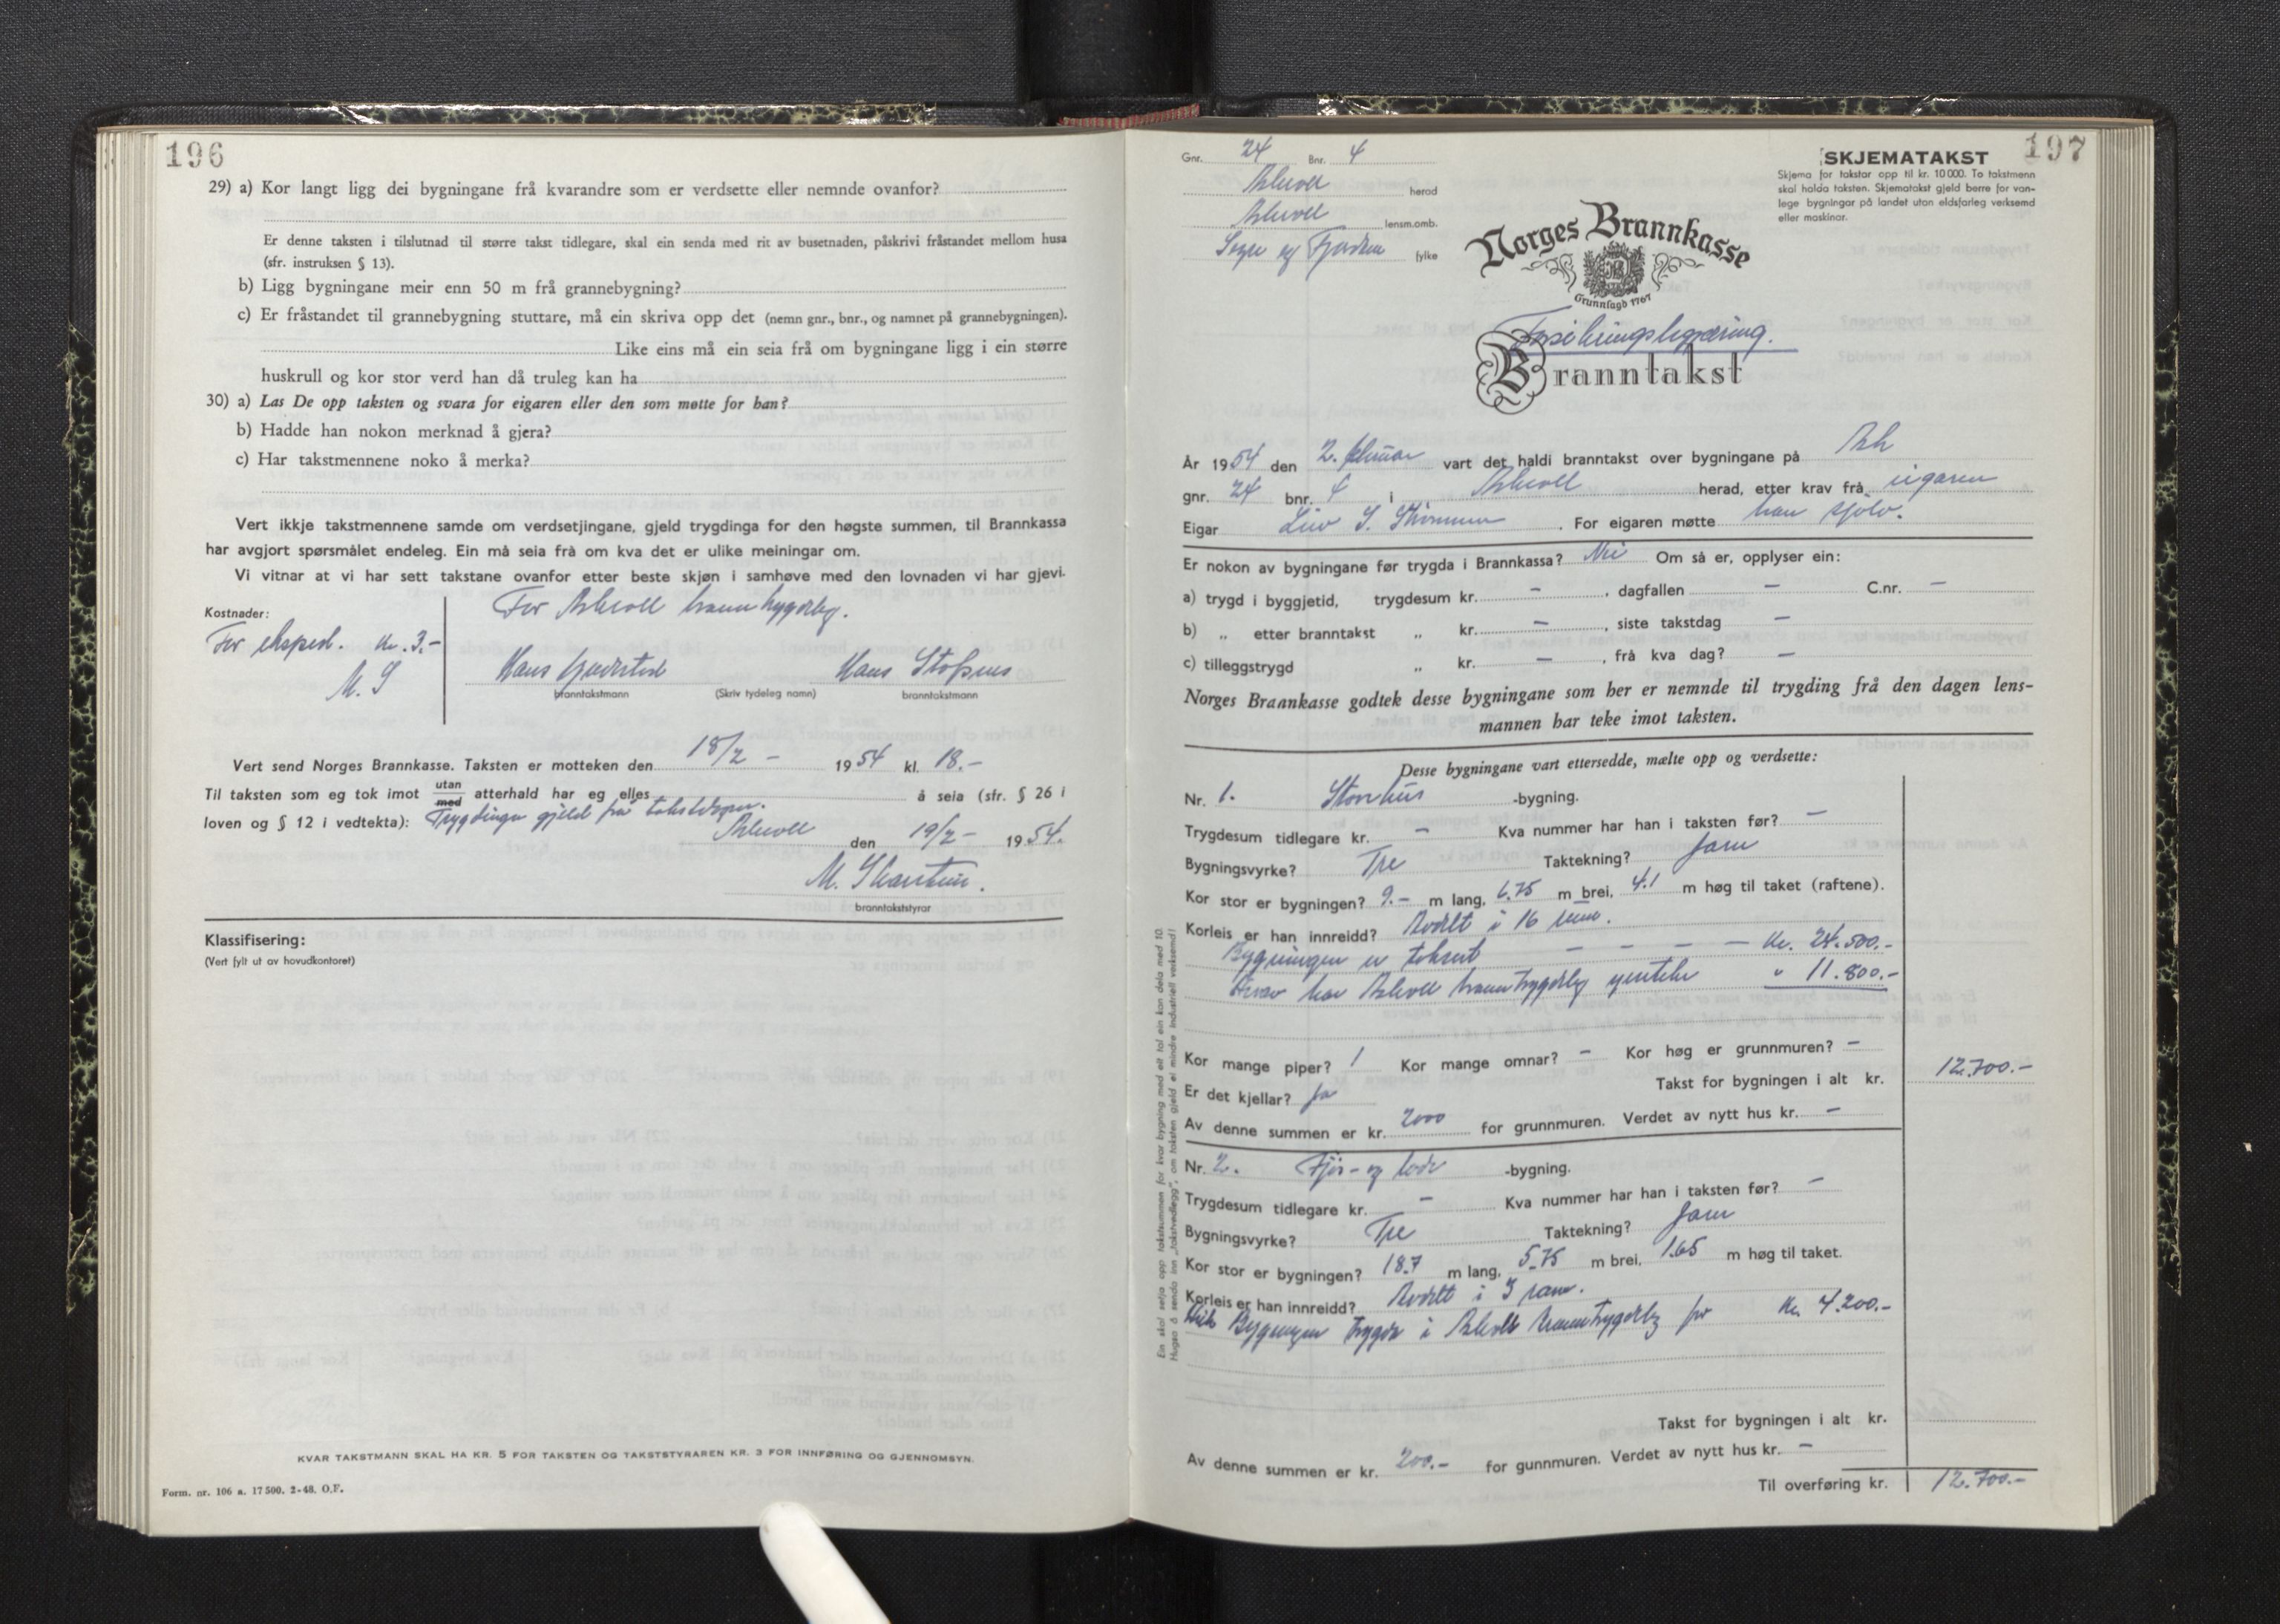 196
29) a) Kor langt ligg dei bygningane frå kvarandre som er verdsette eller nemnde ovanfor?
Er denne taksten i tilslutnad til større takst tidlegare, skal ein senda med rit av busetnaden, påskrivi fråstandet mellom husa
(sfr. instruksen § 13).
b) Ligg bygningane meir enn 50 m frå grannebygning?
c) Er fråstandet til grannebygning stuttare, må ein skriva opp det (nemn gnr., bnr., og namnet på grannebygningen).
Like eins må ein seia frå om bygningane ligg i ein større
huskrull og kor stor verd han då truleg kan ha
30) a) Las De opp taksten og svara for eigaren eller den som møtte for han?
b) Hadde han nokon merknad å gjera?
c) Har takstmennene noko å merka?
Vert ikkje takstmennene samde om verdsetjingane, gjeld trygdinga for den høgste summen, til Brannkassa
har avgjort spørsmålet endeleg. Ein må seia frå om kva det er ulike meiningar om.
Vi vitnar at vi har sett takstane ovanfor etter beste skjøn i samhøve med den lovnaden vi har gjevi.
Kostnader:
For Askvoll branntrygdelag.
For eksped. kr. 3.-
M. S
Hans Hans
branntakstmann (Skriv tydeleg namn) branntakstmann
Vert send Norges Brannkasse. Taksten er motteken den 18/2 - 1954 kl. 18.-
Til taksten som eg tok imot utan med atterhald har eg elles å seia (sfr. § 26 i
loven og § 12 i vedtekta): Trygdinga gjeld frå
Askvoll den 19/2 - 1954.
M.
branntakststyrar
Klassifisering:
(Vert fylt ut av hovudkontoret)
KVAR TAKSTMANN SKAL HA KR. 5 FOR TAKSTEN OG TAKSTSTYRAREN KR. 3 FOR INNFØRING OG GJENNOMSYN.
Form. nr. 106 a. 17 500. 2-48. O.F.
197
Gnr. 24 Bnr. 4
Askvoll herad
Askvoll lensm.omb.
Sogn og Fjordane fylke
SKJEMATAKST
Skjema for takstar opp til kr. 10 000. To takstmenn
skal halda taksten. Skjematakst gjeld berre for van-
lege bygningar på landet utan eldsfarleg verksemd
eller maskinar.
Norges Brannkasse
Grunnlagd 1767
Forsikringsbegjæring.
Branntakst
År 1954 den 2. februar vart det haldi branntakst over bygningane på Ask
gnr. 24 bnr. 4 i Askvoll herad, etter krav frå eigaren
Eigar S. For eigaren møtte han sjølv.
Er nokon av bygningane før trygda i Brannkassa? Nei Om så er, opplyser ein:
a) trygd i byggjetid, trygdesum kr. - , dagfallen - C.nr. -
b) „ etter branntakst „ kr. - , siste takstdag -
c) tilleggstrygd „ kr. - , frå kva dag? -
Norges Brannkasse godtek desse bygningane som her er nemnde til trygding frå den dagen lens-
mannen har teke imot taksten.
Desse bygningane vart ettersedde, mælte opp og verdsette:
Nr. 1. Stovehus -bygning.
Trygdesum tidlegare kr. - Kva nummer har han i taksten før? -
Bygningsvyrke? Tre Taktekning? Jarn
Kor stor er bygningen? 9.- m lang, 6.75 m brei, 4.1 m høg til taket (raftene).
Korleis er han innreidd? Avdelt i 16 rum.
Bygningen er taksert - - - - kr. 24.500.-
Herav har Askvoll branntrygdelag " 11.800.-
Kor mange piper? 1 Kor mange omnar? - Kor høg er grunnmuren? -
Er det kjellar? Ja Takst for bygningen i alt kr. 12.700.-
Av denne summen er kr. 2000 for grunnmuren. Verdet av nytt hus kr. -
Nr. 2. Fjøs- og løde -bygning.
Trygdesum tidlegare kr. - Kva nummer har han i taksten før? -
Bygningsvyrke? Tre Taktekning? Jarn
Kor stor er bygningen? 18.7 m lang, 5.75 m brei, 1.65 m høg til taket.
Korleis er han innreidd? Avdelt i 3 rum.
Bygningen trygda i Askvoll branntrygdelag for kr. 4.200.-
Takst for bygningen i alt kr.
Av denne summen er kr. 200.- for gunnmuren. Verdet av nytt hus kr. -
Til overføring kr. 12.700.-
Ein skal setja opp takstsummen for kvar bygning med eit tal ein kan dela med 10.
Hugsa å senda inn „takstvedlegg", om taksten gjeld ei mindre industriell verksemd!